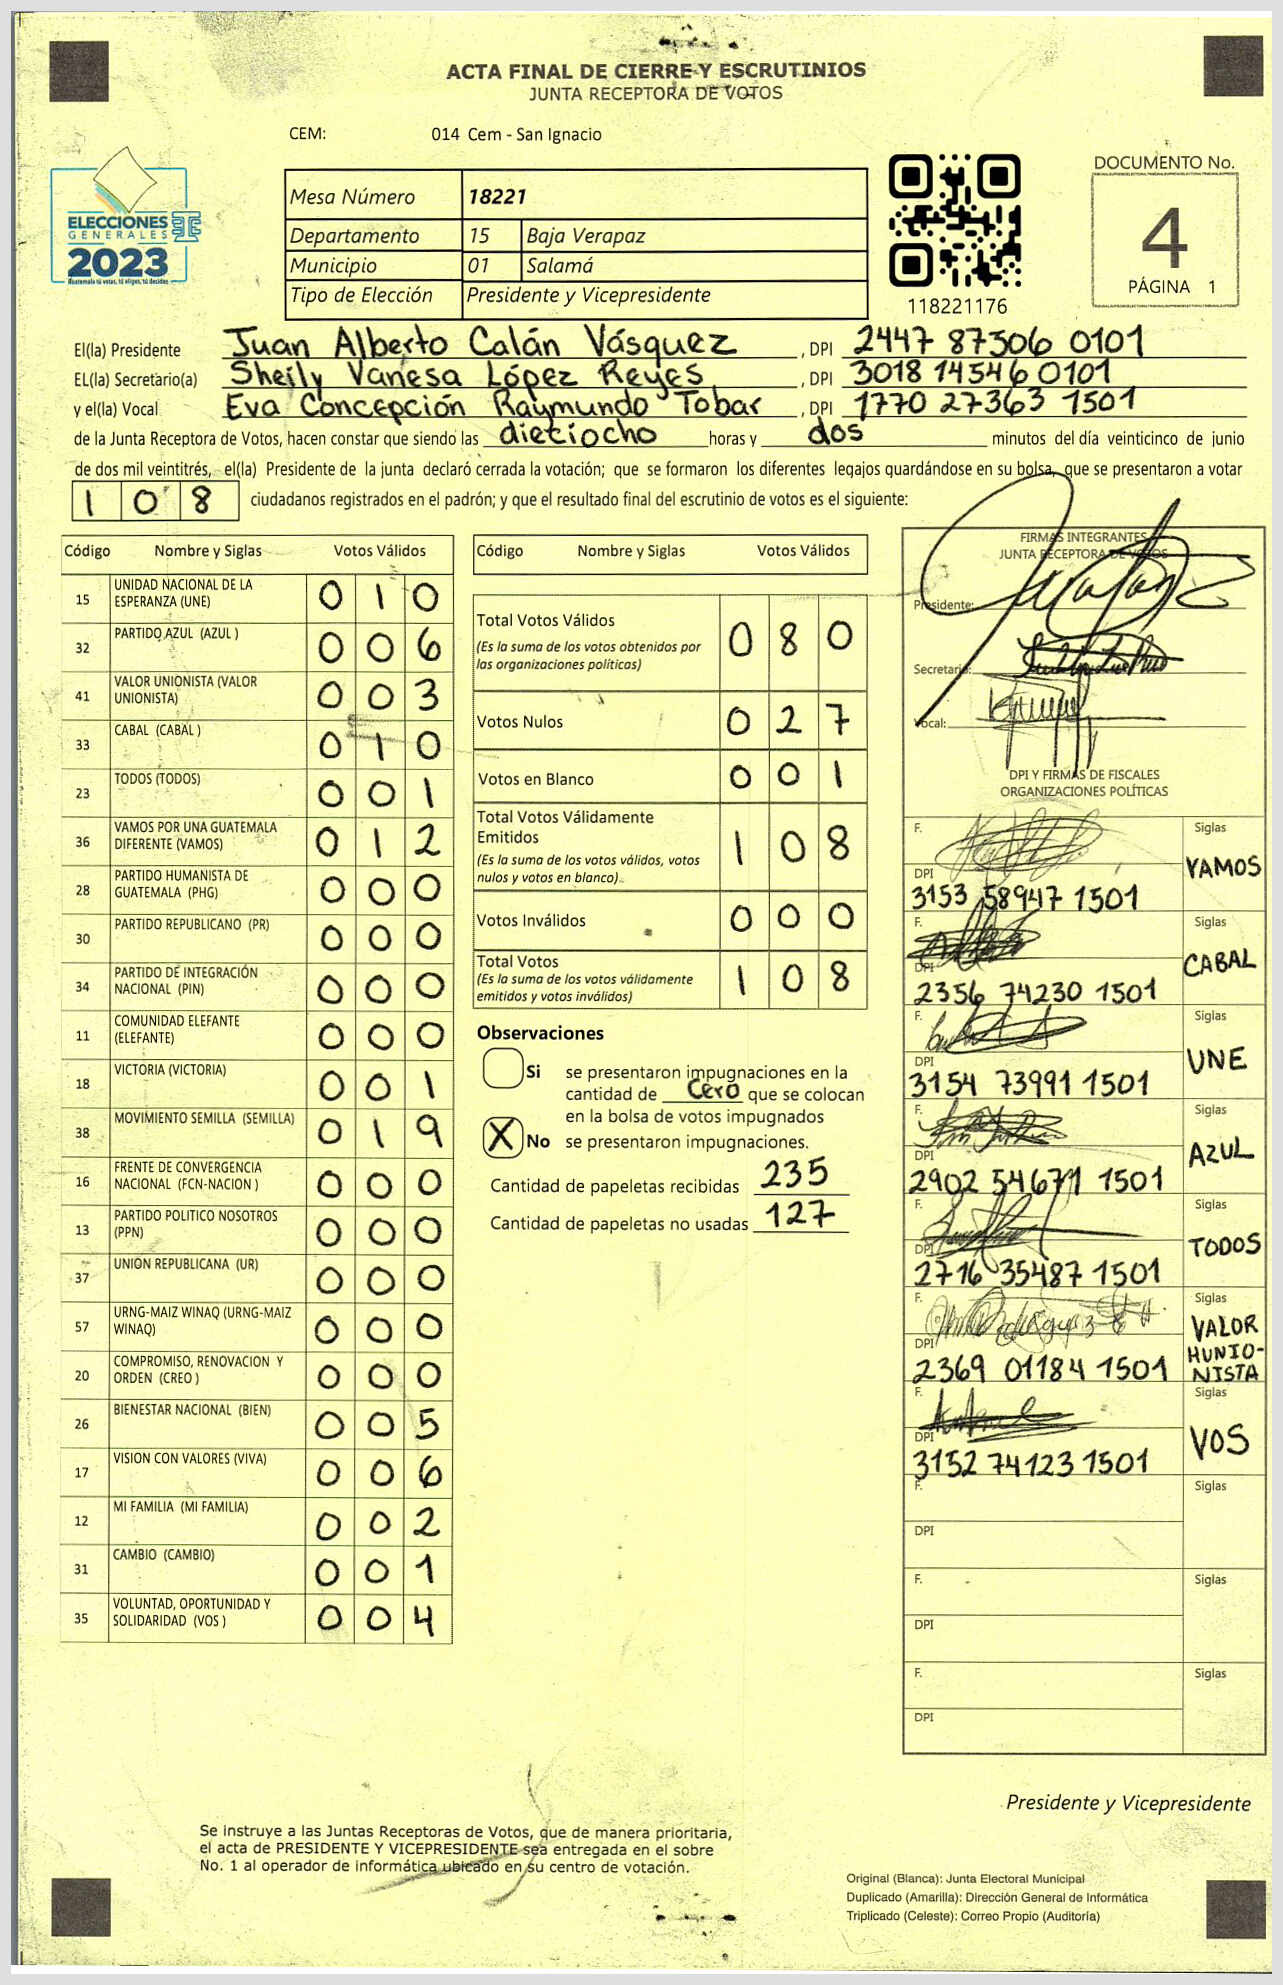 ACTA FINAL DE CIERRE Y ESCRUTINIOS
JUNTA RECEPTORA DE VOTOS
CEM: 014 Cem - San Ignacio
ELECCIONES
GENERALES
2023
Guatemala tú votas, tú eliges, tú decides
Mesa Número 18221
Departamento 15 Baja Verapaz
Municipio 01 Salamá
Tipo de Elección Presidente y Vicepresidente
118221176
DOCUMENTO No.
4
PÁGINA 1
El(la) Presidente Juan Alberto Calán Vásquez, DPI 2447 87306 0101
EL(la) Secretario(a) Sheily Vanesa López Reyes, DPI 3018 14546 0101
y el(la) Vocal Eva Concepción Raymundo Tobar, DPI 1770 27363 1501
de la Junta Receptora de Votos, hacen constar que siendo las dieciocho horas y dos minutos del día veinticinco de junio
de dos mil veintitrés, el(la) Presidente de la junta declaró cerrada la votación; que se formaron los diferentes legajos guardándose en su bolsa, que se presentaron a votar
108 ciudadanos registrados en el padrón; y que el resultado final del escrutinio de votos es el siguiente:
Código Nombre y Siglas Votos Válidos
15 UNIDAD NACIONAL DE LA ESPERANZA (UNE) 0 1 0
32 PARTIDO AZUL (AZUL ) 0 0 6
41 VALOR UNIONISTA (VALOR UNIONISTA) 0 0 3
33 CABAL (CABAL ) 0 1 0
23 TODOS (TODOS) 0 0 1
36 VAMOS POR UNA GUATEMALA DIFERENTE (VAMOS) 0 1 2
28 PARTIDO HUMANISTA DE GUATEMALA (PHG) 0 0 0
30 PARTIDO REPUBLICANO (PR) 0 0 0
34 PARTIDO DE INTEGRACIÓN NACIONAL (PIN) 0 0 0
11 COMUNIDAD ELEFANTE (ELEFANTE) 0 0 0
18 VICTORIA (VICTORIA) 0 0 1
38 MOVIMIENTO SEMILLA (SEMILLA) 0 1 9
16 FRENTE DE CONVERGENCIA NACIONAL (FCN-NACION ) 0 0 0
13 PARTIDO POLITICO NOSOTROS (PPN) 0 0 0
37 UNION REPUBLICANA (UR) 0 0 0
57 URNG-MAIZ WINAQ (URNG-MAIZ WINAQ) 0 0 0
20 COMPROMISO, RENOVACION Y ORDEN (CREO ) 0 0 0
26 BIENESTAR NACIONAL (BIEN) 0 0 5
17 VISION CON VALORES (VIVA) 0 0 6
12 MI FAMILIA (MI FAMILIA) 0 0 2
31 CAMBIO (CAMBIO) 0 0 1
35 VOLUNTAD, OPORTUNIDAD Y SOLIDARIDAD (VOS ) 0 0 4
Código Nombre y Siglas Votos Válidos
Total Votos Válidos 0 8 0
(Es la suma de los votos obtenidos por
las organizaciones políticas)
Votos Nulos 0 2 7
Votos en Blanco 0 0 1
Total Votos Válidamente
Emitidos 1 0 8
(Es la suma de los votos válidos, votos
nulos y votos en blanco)
Votos Inválidos 0 0 0
Total Votos 1 0 8
(Es la suma de los votos válidamente
emitidos y votos inválidos)
Observaciones
Si se presentaron impugnaciones en la
cantidad de Cero que se colocan
en la bolsa de votos impugnados
X No se presentaron impugnaciones.
Cantidad de papeletas recibidas 235
Cantidad de papeletas no usadas 127
FIRMAS INTEGRANTES
JUNTA RECEPTORA DE VOTOS
Presidente:
Secretario:
Vocal:
DPI Y FIRMAS DE FISCALES
ORGANIZACIONES POLÍTICAS
F. Siglas
DPI VAMOS
3153 58947 1501
F. Siglas
DPI CABAL
2356 74230 1501
F. Siglas
DPI UNE
3154 73991 1501
F. Siglas
DPI AZUL
2902 54671 1501
F. Siglas
DPI TODOS
2716 35487 1501
F. Siglas
DPI VALOR HUNIO-NISTA
2369 01184 1501
F. Siglas
DPI VOS
3152 74123 1501
F. Siglas
DPI
F. Siglas
DPI
F. Siglas
DPI
Presidente y Vicepresidente
Se instruye a las Juntas Receptoras de Votos, que de manera prioritaria,
el acta de PRESIDENTE Y VICEPRESIDENTE sea entregada en el sobre
No. 1 al operador de informática ubicado en su centro de votación.
Original (Blanca): Junta Electoral Municipal
Duplicado (Amarilla): Dirección General de Informática
Triplicado (Celeste): Correo Propio (Auditoría)